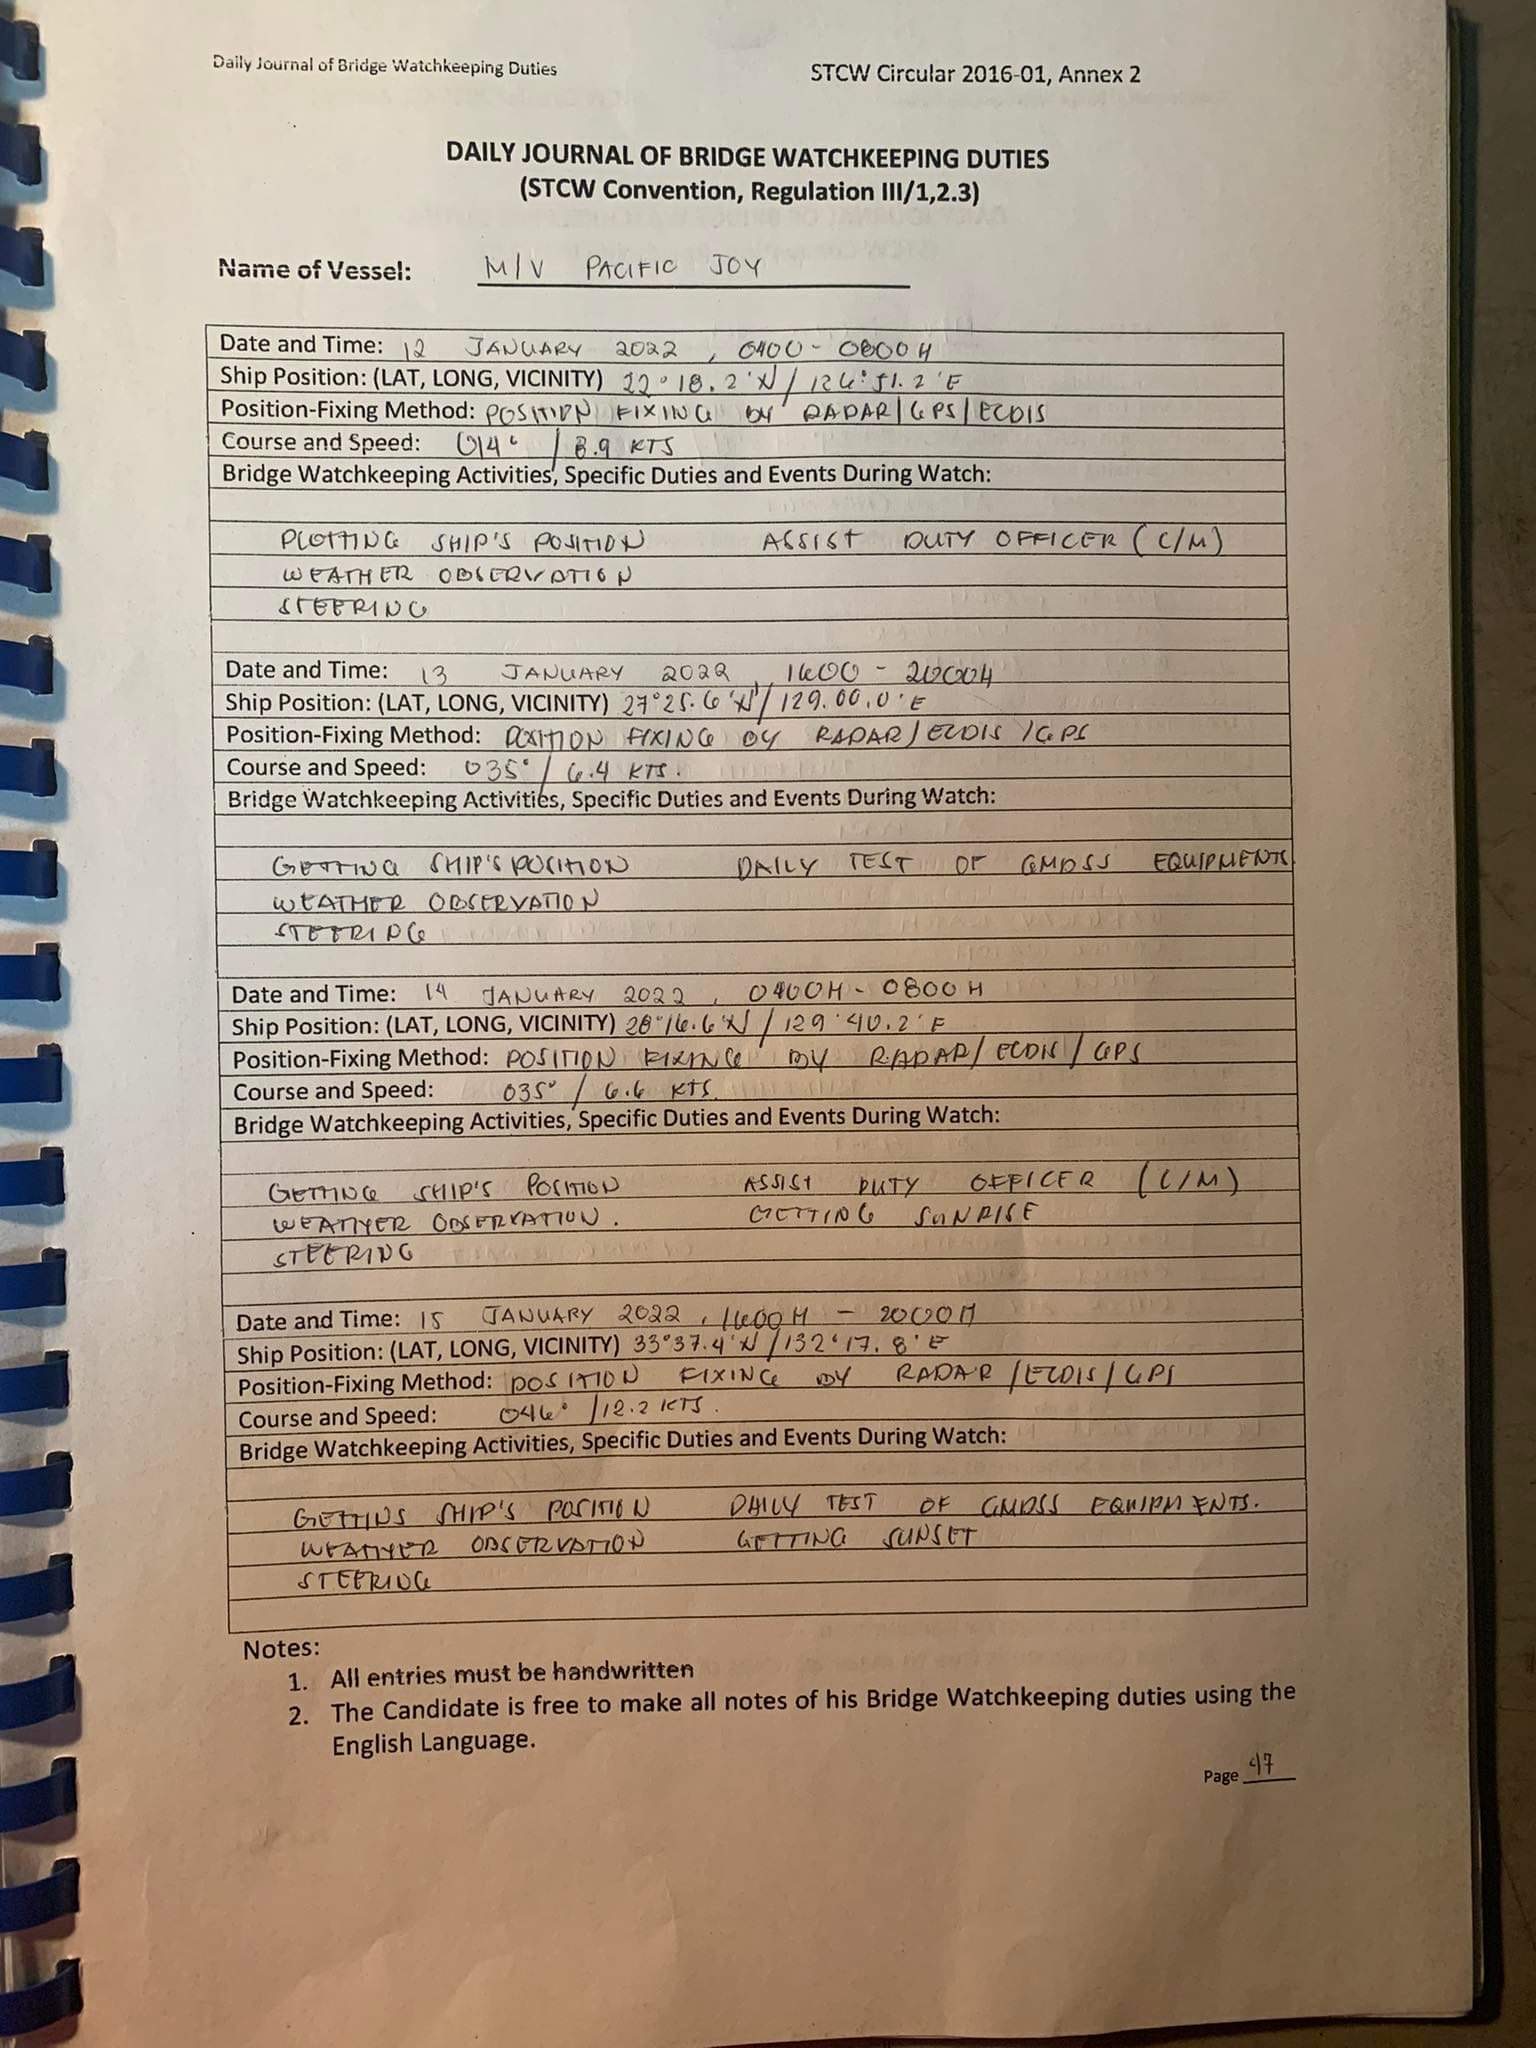 Daily Journal of Bridge Watchkeeping Duties
STCW Circular 2016-01, Annex 2
DAILY JOURNAL OF BRIDGE WATCHKEEPING DUTIES
(STCW Convention, Regulation III/1,2.3)
Name of Vessel: M/V PACIFIC JOY
Date and Time: 12 JANUARY 2022, 0400 - 0800H
Ship Position: (LAT, LONG, VICINITY) 22°18.2'N / 126°51.2'E
Position-Fixing Method: POSITION FIXING BY RADAR/GPS/ECDIS
Course and Speed: 014° / 8.9 KTS
Bridge Watchkeeping Activities, Specific Duties and Events During Watch:
PLOTTING SHIP'S POSITION ASSIST DUTY OFFICER (C/M)
WEATHER OBSERVATION
STEERING
Date and Time: 13 JANUARY 2022, 1600 - 2000H
Ship Position: (LAT, LONG, VICINITY) 27°25.6'N / 129.00.0'E
Position-Fixing Method: POSITION FIXING BY RADAR/ECDIS/GPS
Course and Speed: 035° / 6.4 KTS.
Bridge Watchkeeping Activities, Specific Duties and Events During Watch:
GETTING SHIP'S POSITION DAILY TEST OF GMDSS EQUIPMENTS
WEATHER OBSERVATION
STEERING
Date and Time: 14 JANUARY 2022, 0400H - 0800H
Ship Position: (LAT, LONG, VICINITY) 28°16.6'N / 129°40.2'E
Position-Fixing Method: POSITION FIXING BY RADAR/ECDIS/GPS
Course and Speed: 035° / 6.6 KTS.
Bridge Watchkeeping Activities, Specific Duties and Events During Watch:
GETTING SHIP'S POSITION ASSIST DUTY OFFICER (C/M)
WEATHER OBSERVATION. GETTING SUNRISE
STEERING
Date and Time: 15 JANUARY 2022, 1600H - 2000H
Ship Position: (LAT, LONG, VICINITY) 33°37.4'N / 132°17.8'E
Position-Fixing Method: POSITION FIXING BY RADAR/ECDIS/GPS
Course and Speed: 046° / 12.2 KTS.
Bridge Watchkeeping Activities, Specific Duties and Events During Watch:
GETTING SHIP'S POSITION DAILY TEST OF GMDSS EQUIPMENTS.
WEATHER OBSERVATION GETTING SUNSET
STEERING
Notes:
1. All entries must be handwritten
2. The Candidate is free to make all notes of his Bridge Watchkeeping duties using the
English Language.
Page 47